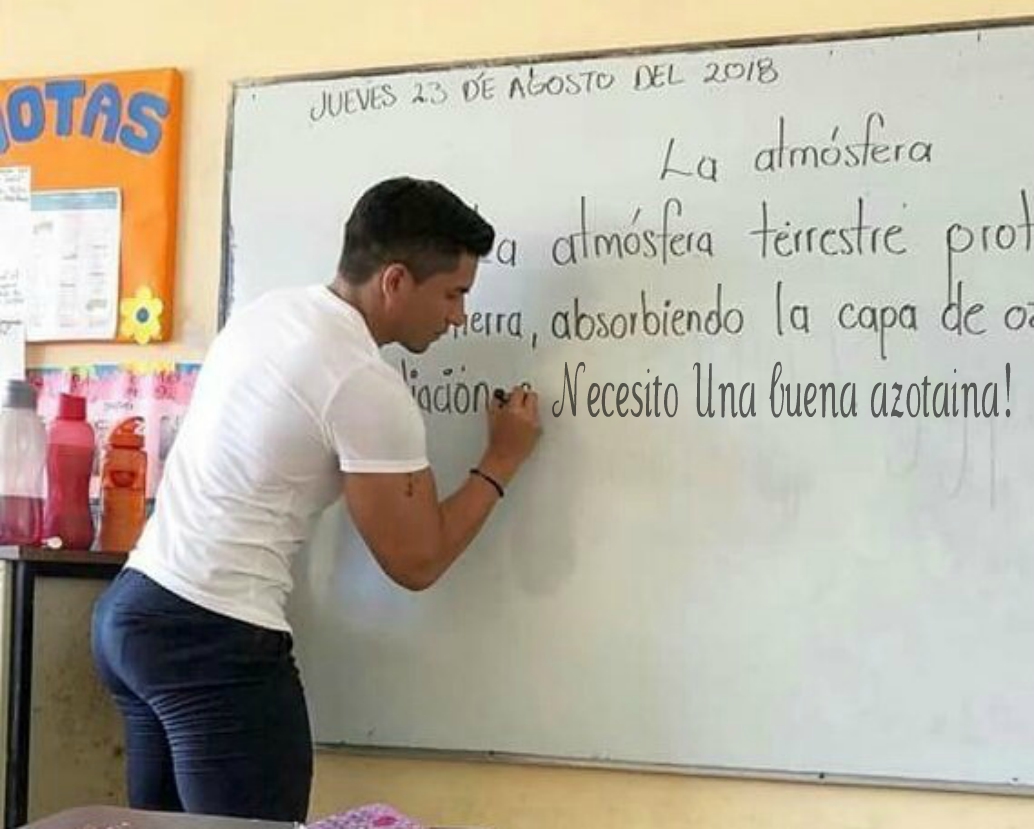 JUEVES 23 DE AGOSTO DEL 2018
OTAS
La atmósfera
a atmósfera terrestre prot
ierra, absorbiendo la capa de oz
iación Necesito Una buena azotaina!